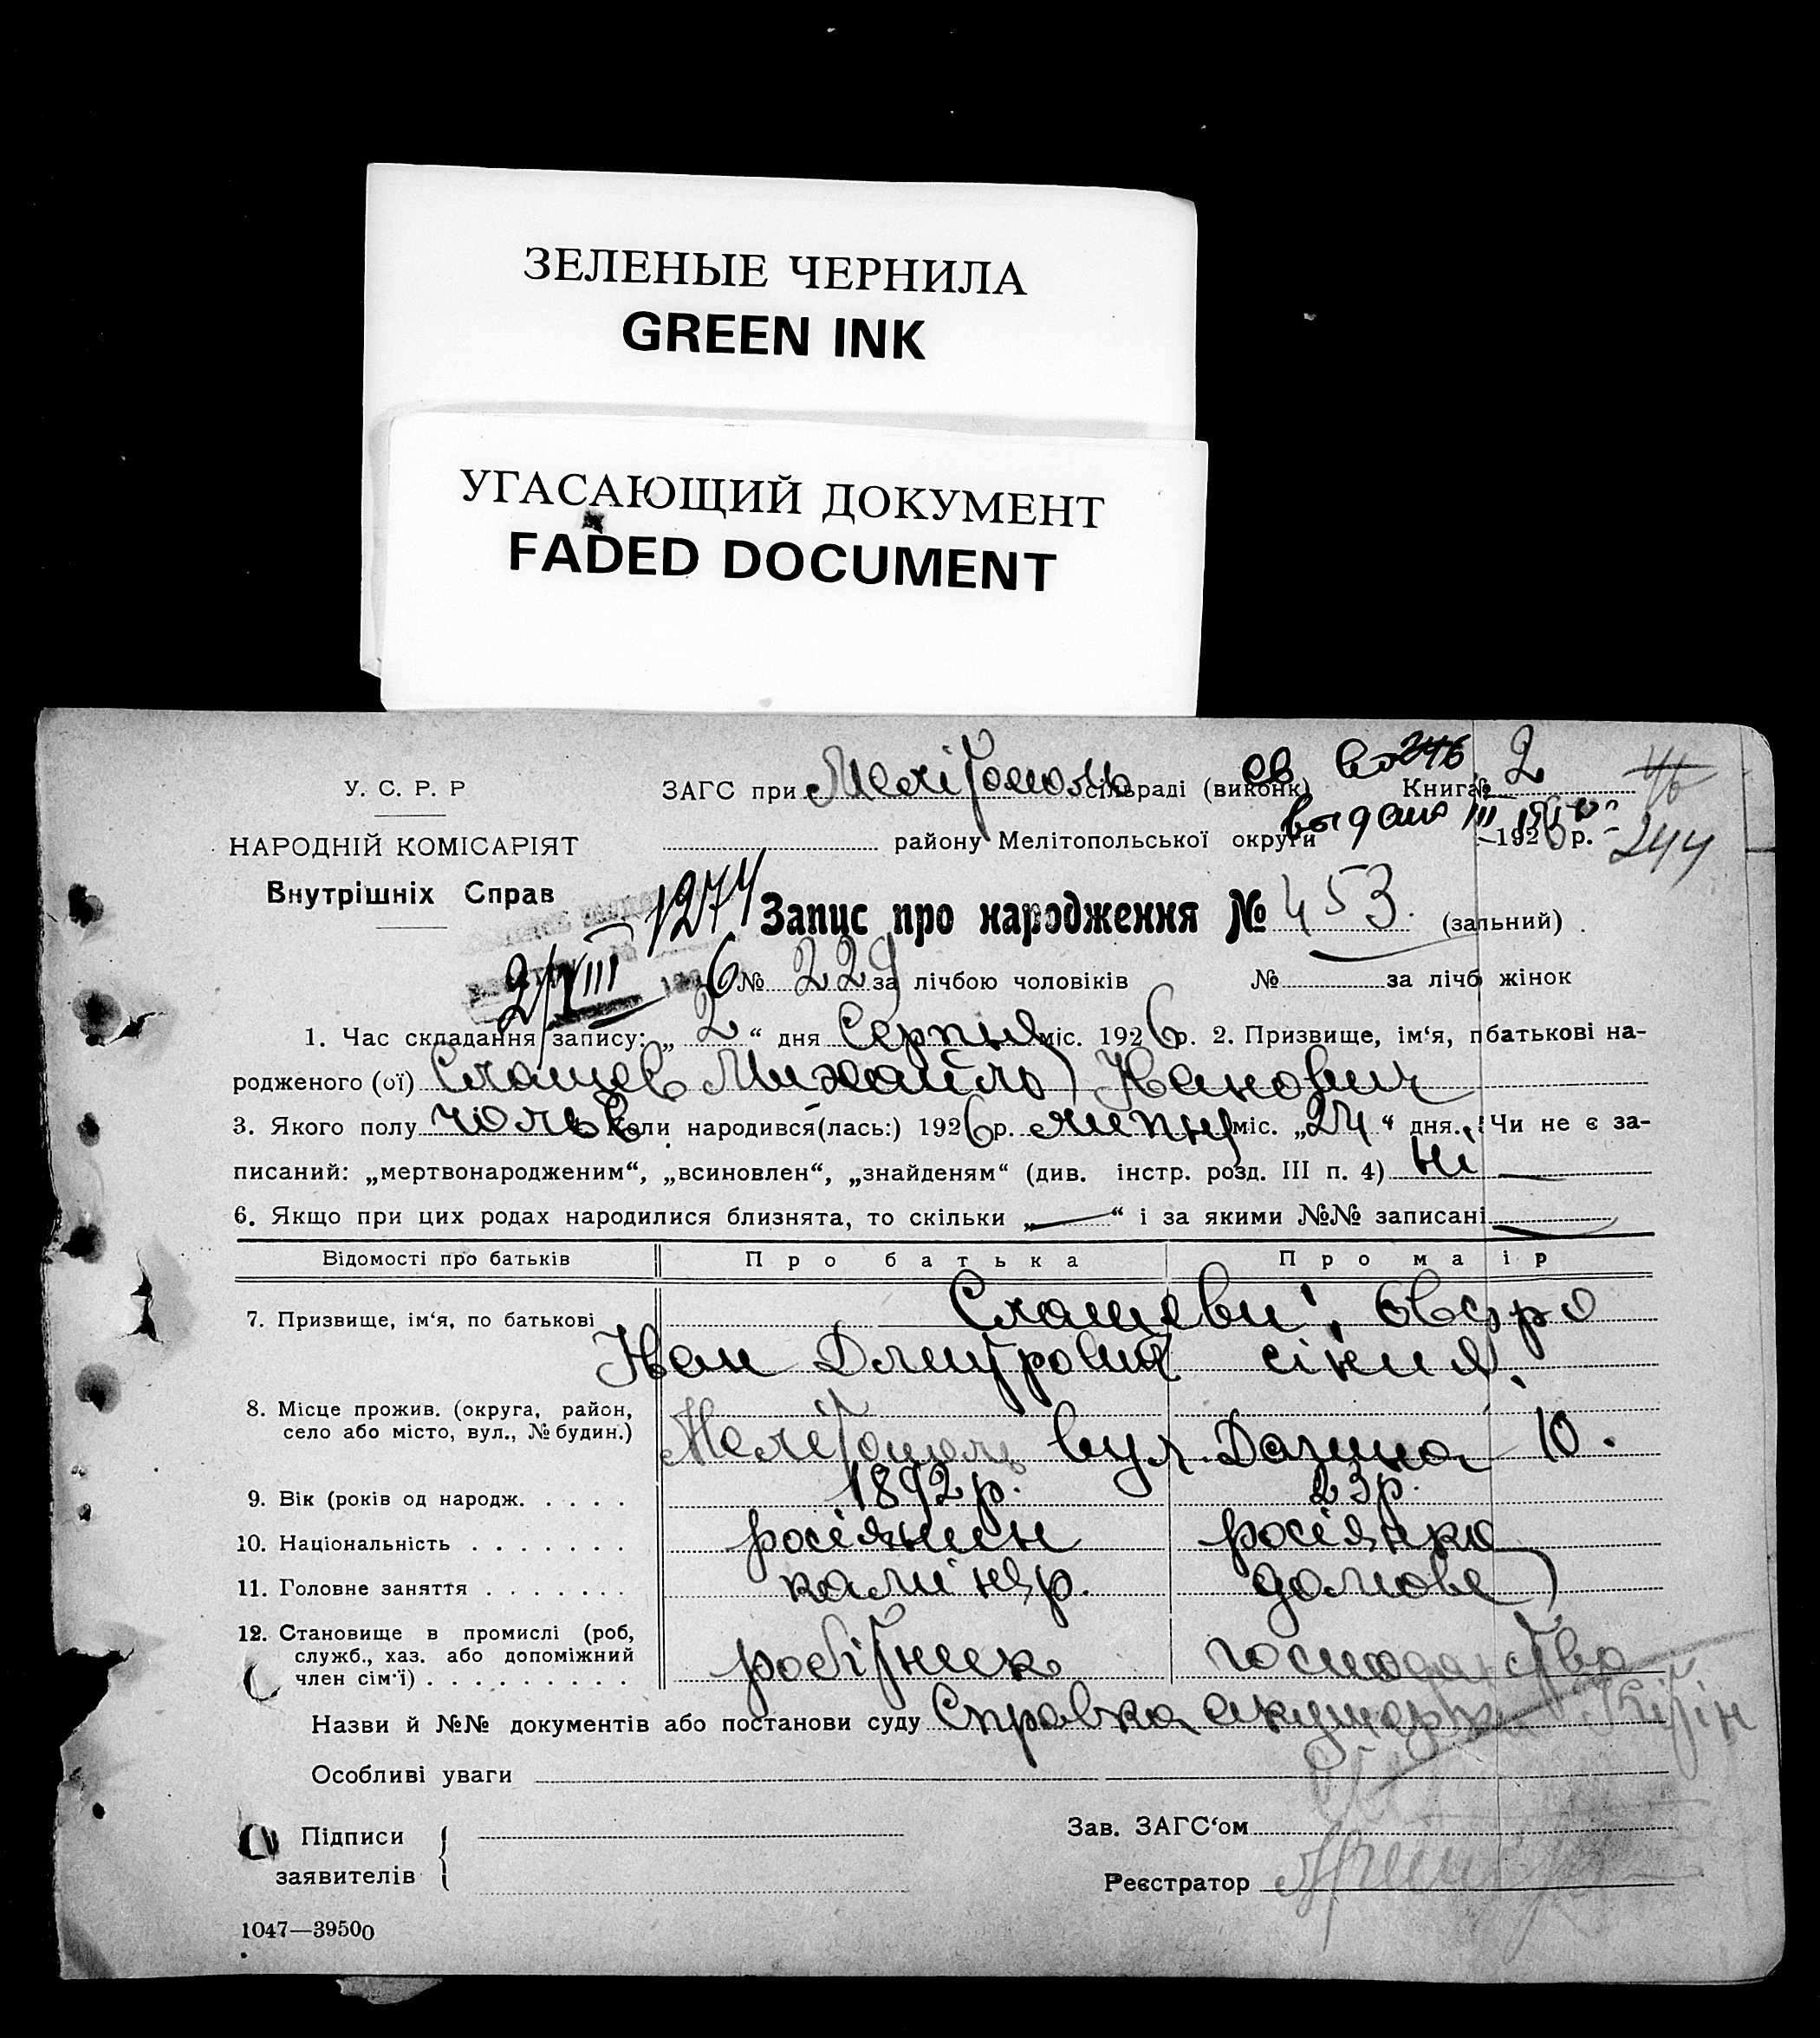 ЗЕЛЕНЫЕ ЧЕРНИЛА
GREEN INK
УГАСАЮЩИЙ ДОКУМЕНТ
FADED DOCUMENT
У. С. Р. Р
НАРОДНІЙ КОМІСАРІЯТ
Внутрішніх Справ
ЗАГС при Мелітополь сільраді (виконк) Книга № 2
св 246 46
району Мелітопольської округи 1926 р. 244
1274 Запис про народження № 453. (загальний)
2/VIII 6 № 229 за лічбою чоловіків № за лічб жінок
1. Час складання запису: „ 2 “ дня Серпня міс. 1926 р. 2. Призвище, ім‘я, пбатькові на-
родженого (ої) Слащев Михайло Іванович
3. Якого полу чолов Коли народився(лась:) 1926 р. липня міс. „24“ дня. Чи не є за-
писаний: „мертвонародженим“, „всиновлен“, „знайденям“ (див. інстр. розд. III п. 4) ні
6. Якщо при цих родах народилися близнята, то скільки „ “ і за якими №№ записані
Відомості про батьків Про батька Про маір
7. Призвище, ім‘я, по батькові Слащеви: Евфро
Іван Дмитрович сінія.
8. Місце прожив. (округа, район,
село або місто, вул., № будин.) Мелітополь вул. 10.
9. Вік (років од народж. . . . . 1892 р. 23 р.
10. Національність . . . . . . . росіянин росіянка
11. Головне заняття . . . . . . . каміняр. домове
12. Становище в промислі (роб,
служб., хаз. або допоміжний
член сім‘ї) . . . . . . . . . робітник господарство
Назви й №№ документів або постанови суду Справка акушерки
Особливі уваги
Підписи
заявителів
Зав. ЗАГС‘ом
Реєстратор
1047—39500